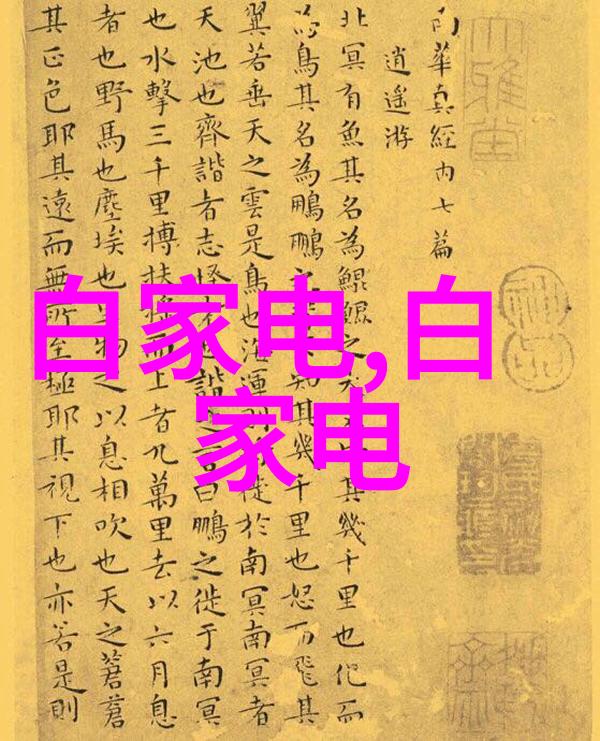 南華真經内七篇
逍遙游
北冥有魚其名為鯤鯤之大其幾千里也化而
為鳥其名為鵬鵬之知其幾千里也怒而飛其
翼若垂天之雲是鳥也海運則徙於南冥南冥者
天池也齊諧者志怪者也諧之言曰鵬之徙于南冥
也水擊三千里摶扶搖而上者九萬里去以六月息
者也野馬也塵埃也生物之以息相吹也天之蒼蒼
其正色耶其遠而無所至極耶其視下也亦若是則
白家电,白
家电
大雅堂
神品